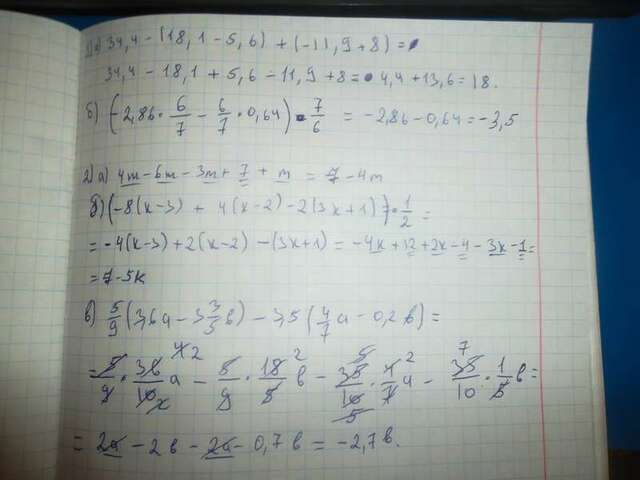 1) а) 34,4 - (18,1 - 5,6) + (-11,9 + 8) =
34,4 - 18,1 + 5,6 - 11,9 + 8 = 4,4 + 13,6 = 18.
б) (-2,86 · 6/7 - 6/7 · 0,64) · 7/6 = -2,86 - 0,64 = -3,5
2) а) 4m - 6m - 3m + 7 + m = 7 - 4m
б) (-8(к-3) + 4(к-2) - 2(3к+1)) · 1/2 =
= -4(к-3) + 2(к-2) - (3к+1) = -4к + 12 + 2к - 4 - 3к - 1 =
= 7 - 5к
в) 5/9 (3,6а - 3 3/5 в) - 3,5 (4/7 а - 0,2 в) =
= 5/9 · 36/10 а - 5/9 · 18/5 в - 35/10 · 4/7 а - 35/10 · 1/5 в =
= 2а - 2в - 2а - 0,7в = -2,7в.